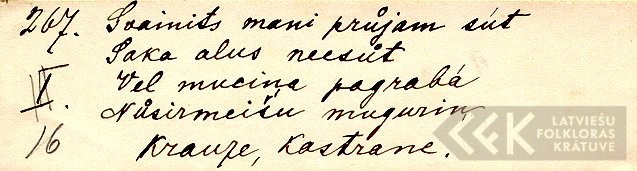 267. Svainits mani průjam sút
Saka alus neesůt
I. Vel muciņa pagrabá
Nůsirmeišu mugurin,
16 Krauze, Kastrane.
LATVIEŠU
FOLKLORAS
KRĀTUVE